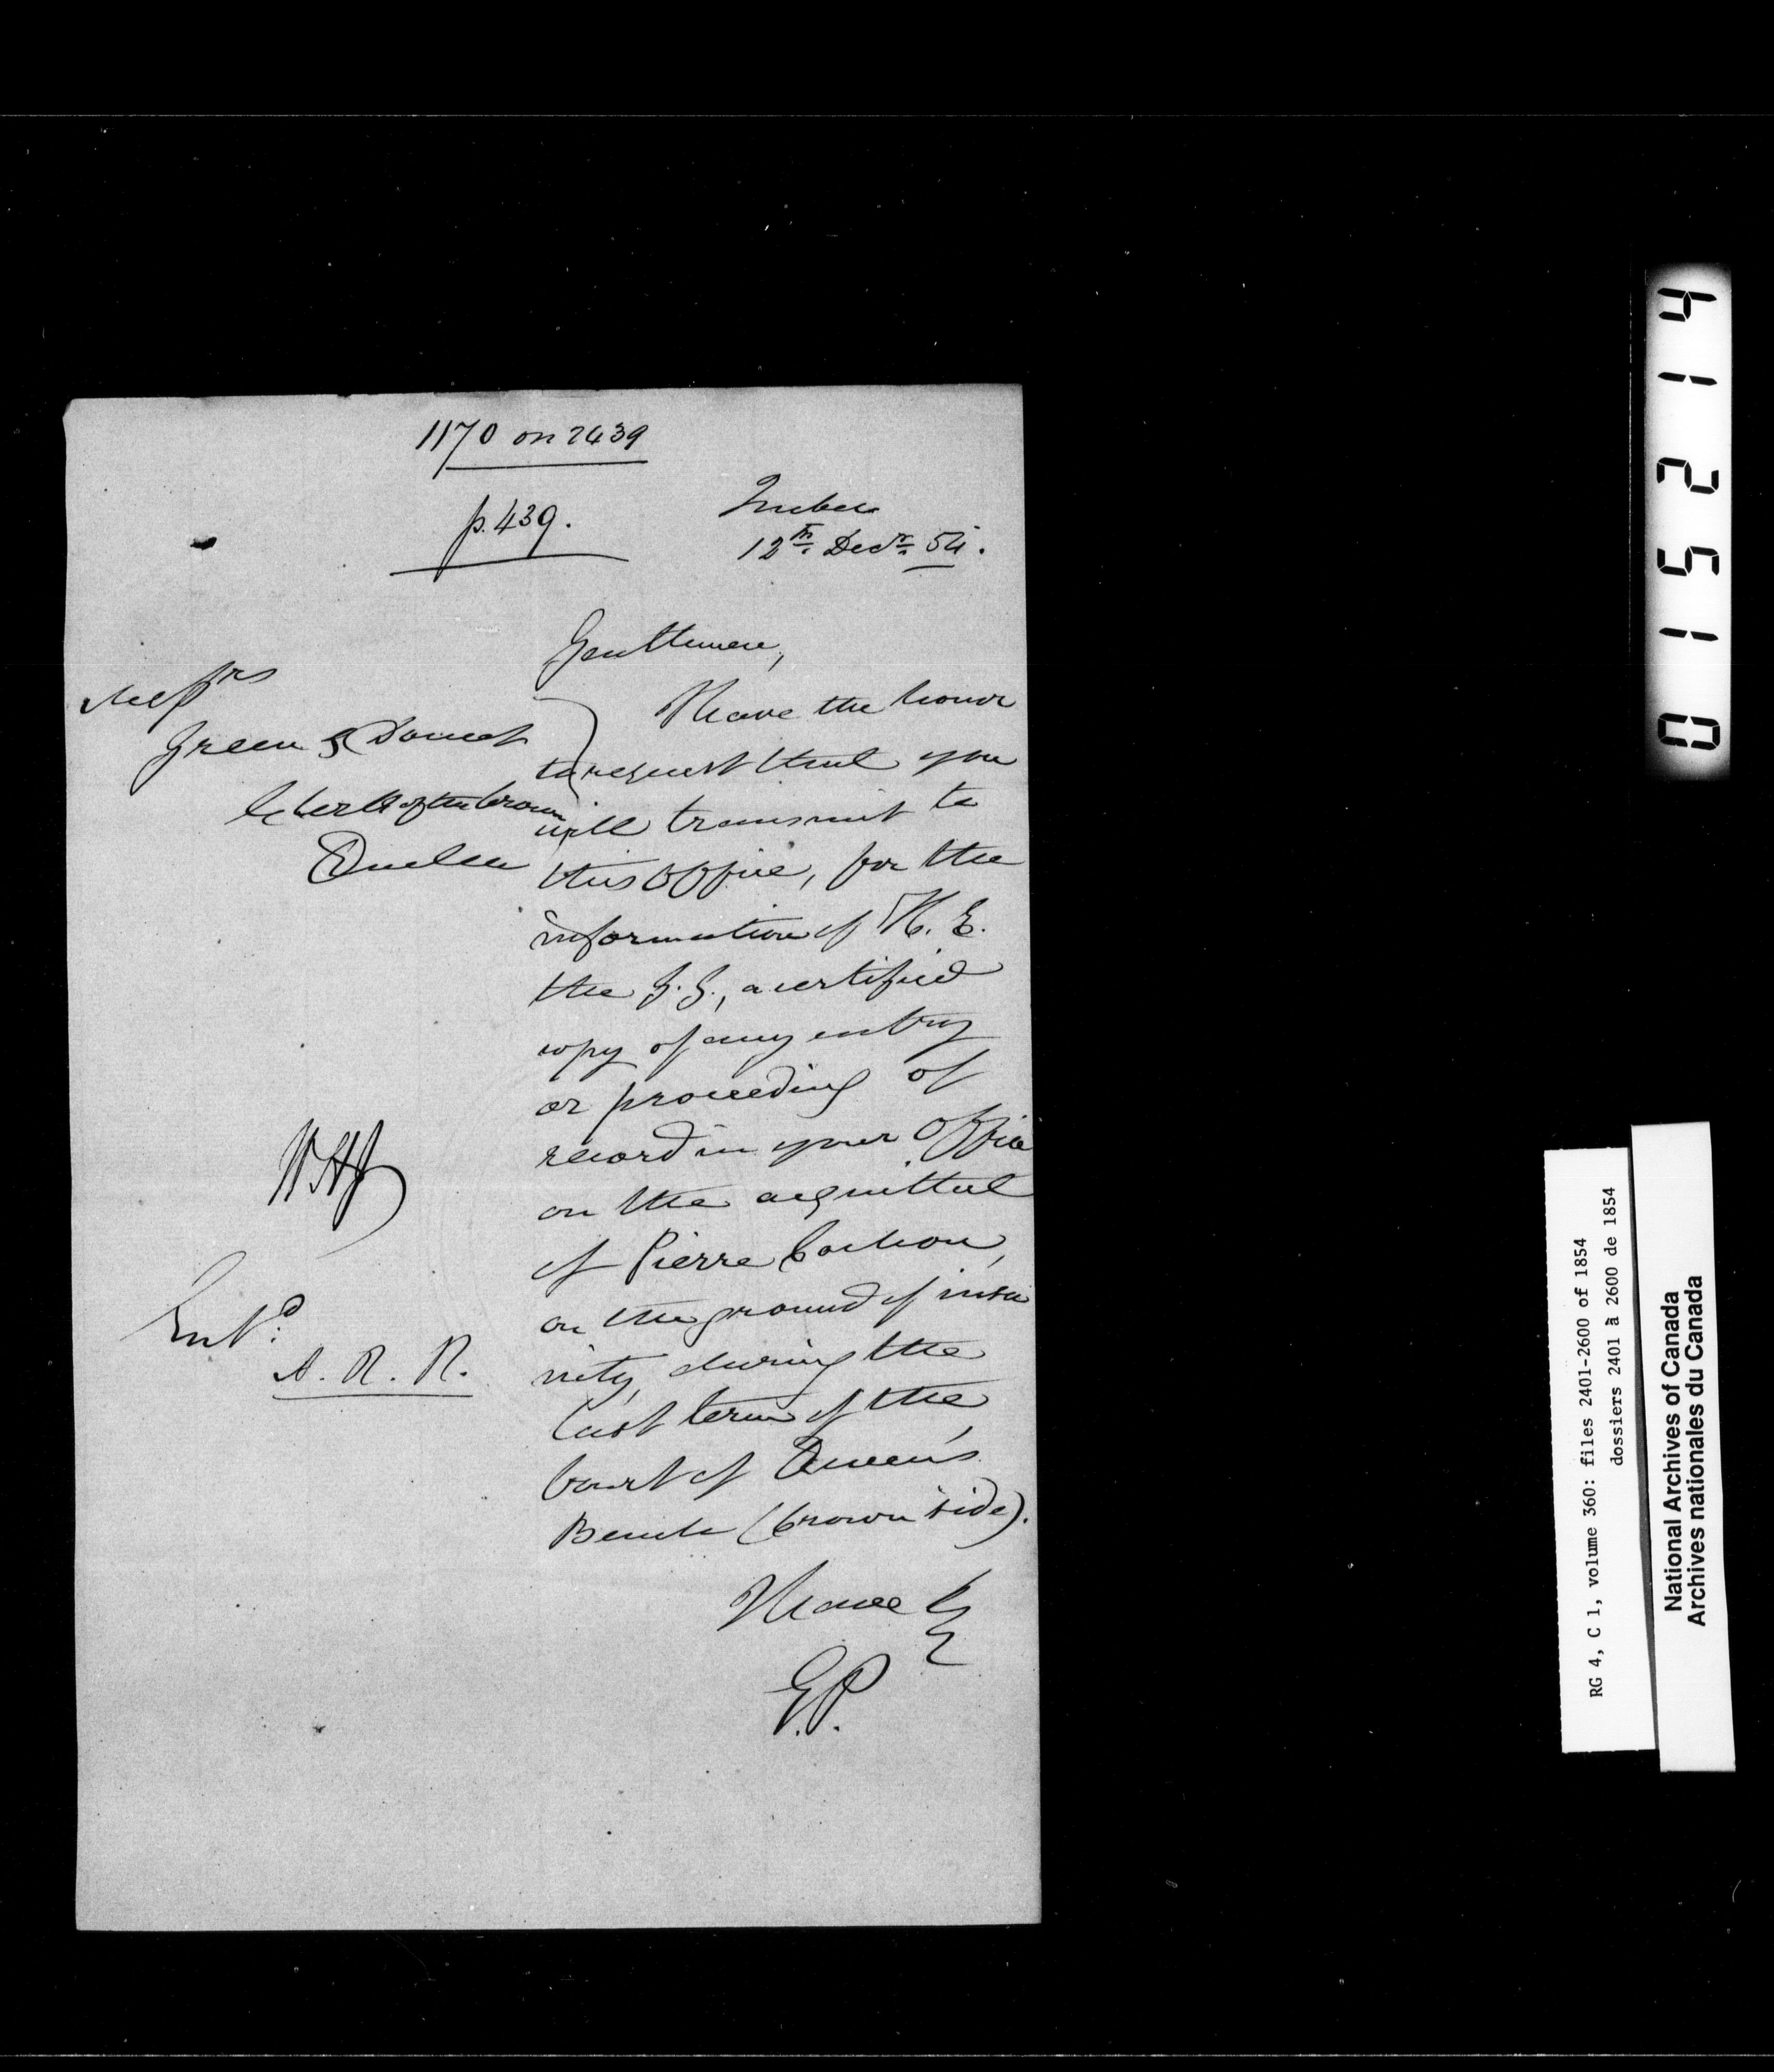 1170 on 2439
p. 439.
Quebec
12th Decr 54.
Gentlemen,
Messrs
Green & Doucet
Clerk of the Crown
Quebec
I have the honor
to request that you
will transmit to
this Office, for the
information of H. E.
the G. G., a certified
copy of any entry
or proceeding of
record in your Office
on the acquittal
of Pierre Cochon,
on the ground of insa
nity, during the
last term of the
Court of Queen's
Bench (Crown side).
I have &
E.P.
Entd:
A. R. R.
0 1 5 2 1 4
RG 4, C 1, volume 360: files 2401-2600 of 1854
dossiers 2401 à 2600 de 1854
National Archives of Canada
Archives nationales du Canada